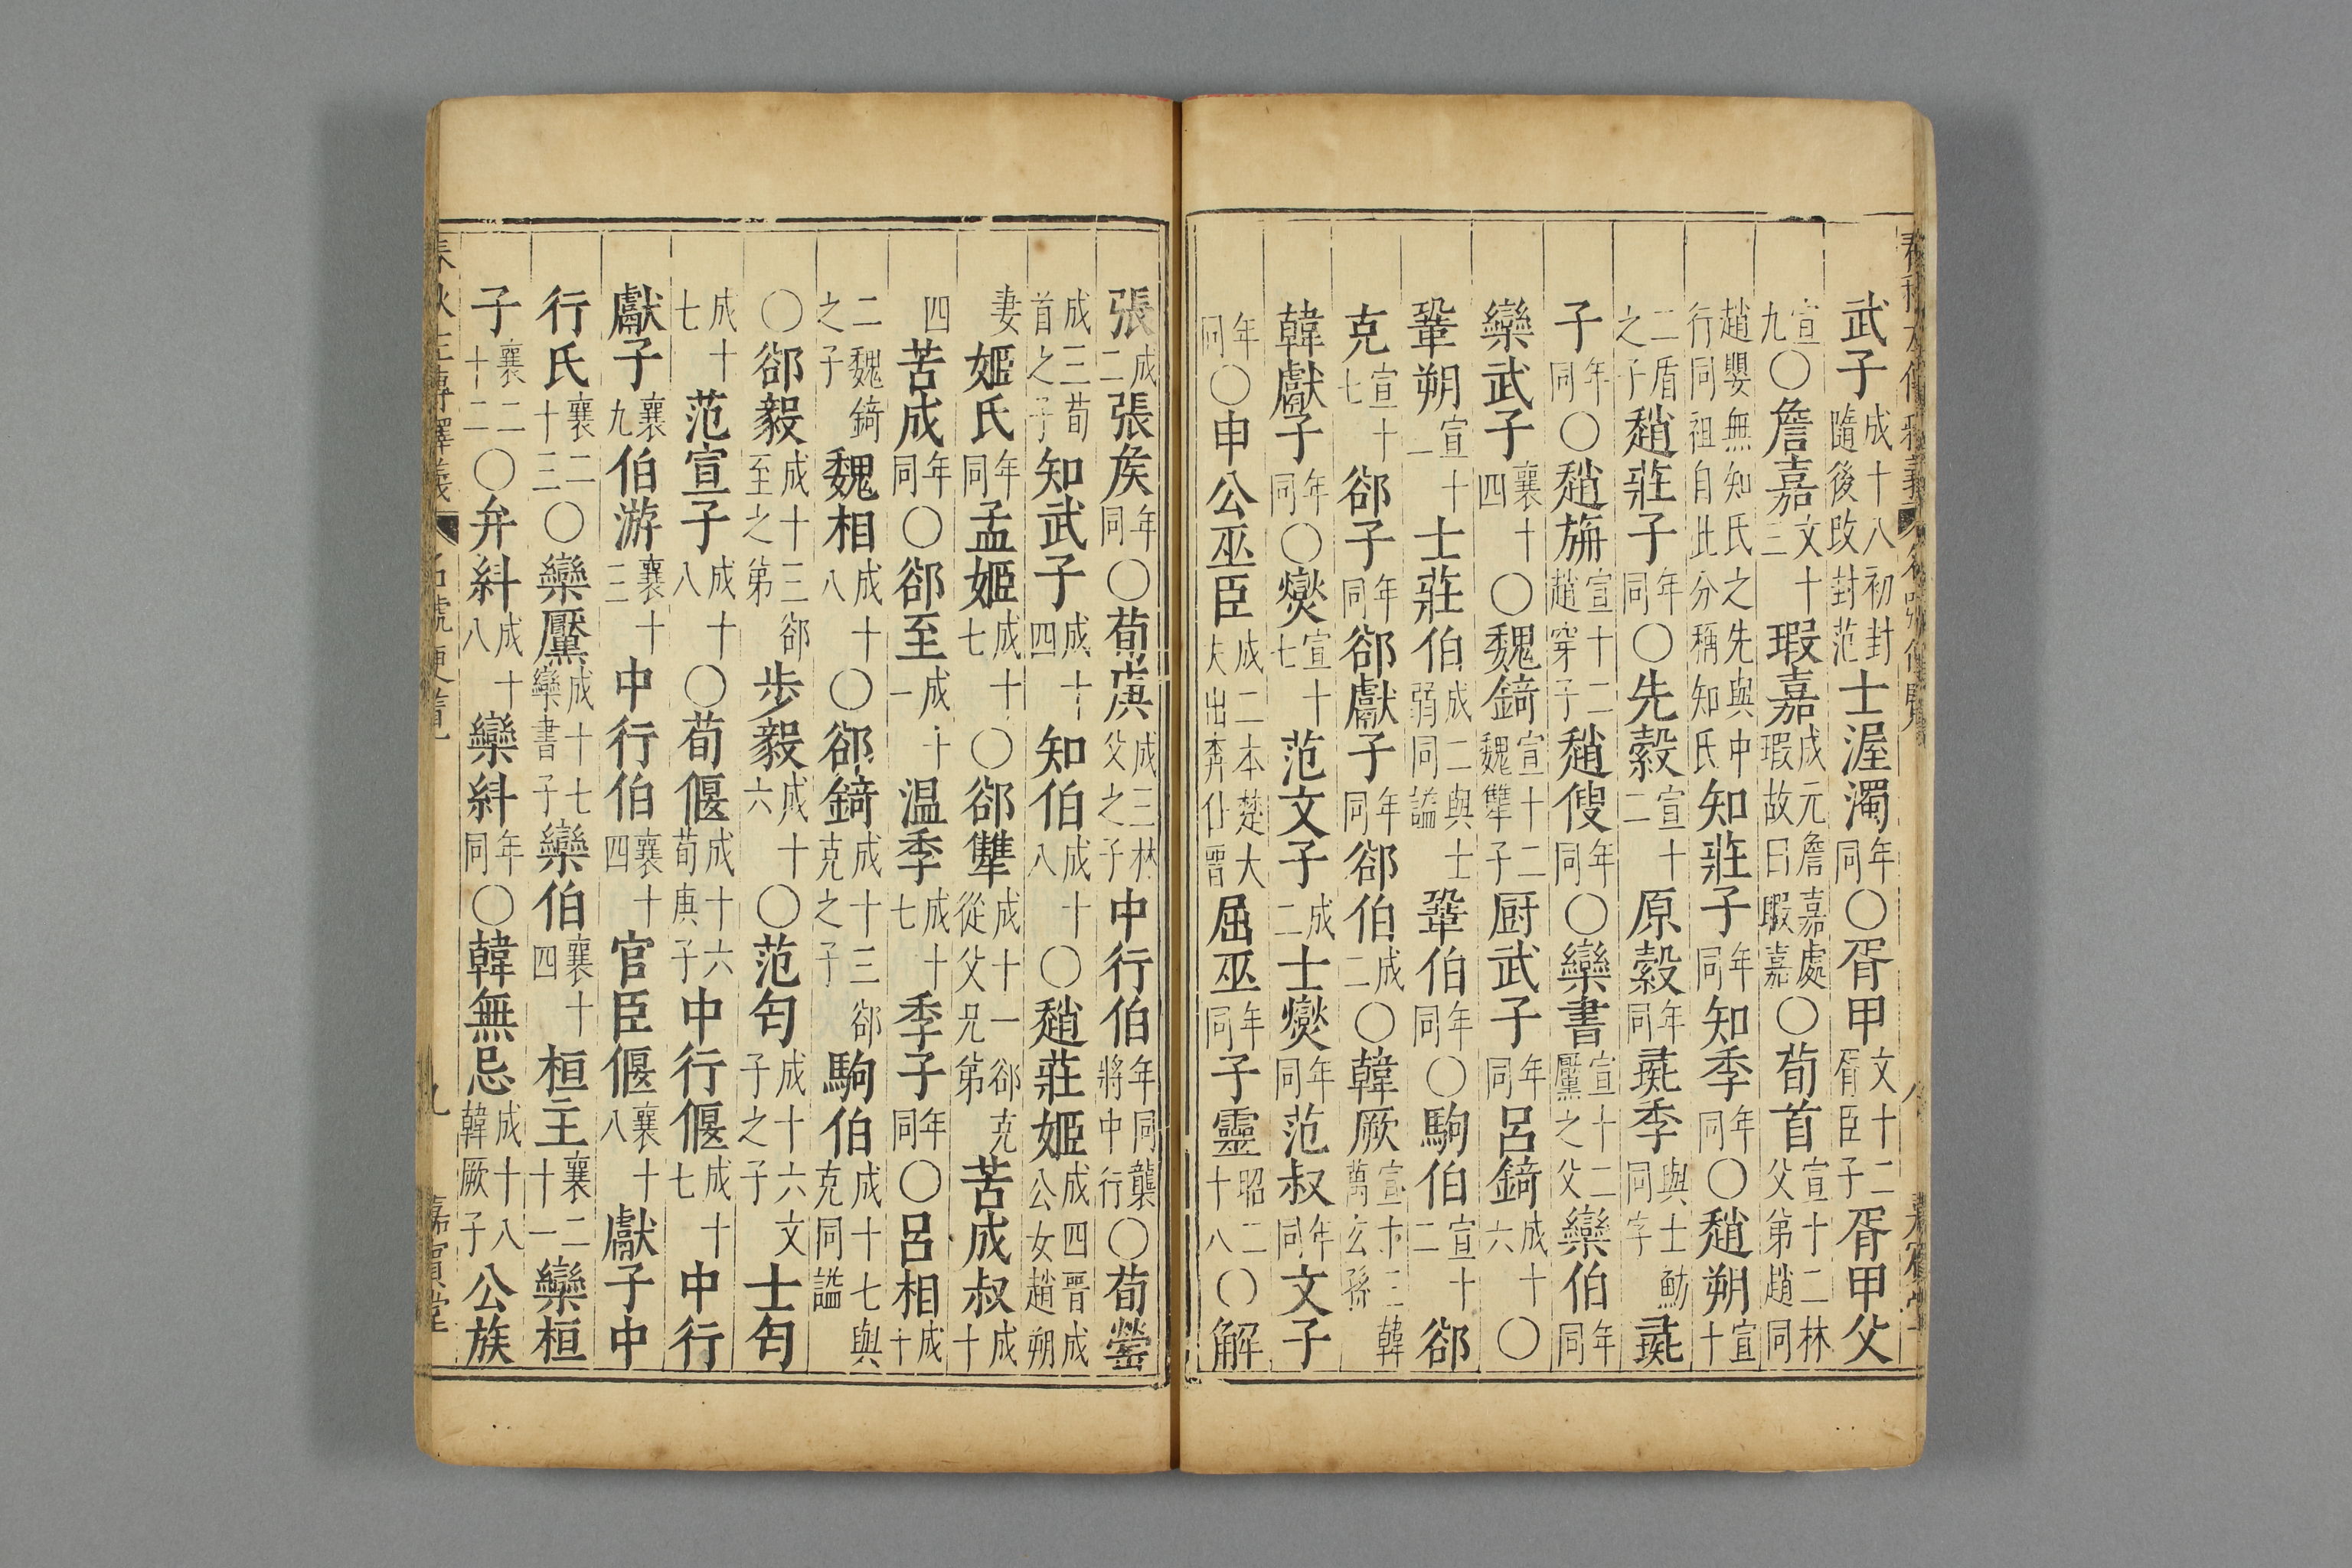 武子成十八初封隨後攺封范士渥濁年同〇胥甲文十二胥臣子胥甲父
宣九〇詹嘉文十三瑕嘉成元詹嘉處瑕故曰瑕嘉〇荀首宣十二林父第趙同
趙嬰無知氏之先與中行同祖自此分稱知氏知莊子年同知季年同〇趙朔宣十
二盾之子趙莊子年同〇先縠宣十二原縠年同彘季與士魴同字彘
子年同〇趙旃宣十二趙穿子趙傁年同〇欒書宣十二黶之父欒伯年同
欒武子襄十四〇魏錡宣十二魏犫子厨武子年同呂錡成十六〇
鞏朔宣十一士莊伯成二與士弱同謚鞏伯年同〇駒伯宣十二郤
克宣十七郤子年同郤獻子年同郤伯成二〇韓厥宣十三韓萬么孫
韓獻子年同〇爕宣十七范文子成二士爕年同范叔年同文子
年同〇申公巫臣成二本楚大夫出奔仕晉屈巫年同子靈昭二十八〇解
張成二張矦年同〇荀庚成三林父之子中行伯年同襲將中行〇荀罃
成三荀首之子知武子成十四知伯成十八〇趙莊姬成四晉成公女趙朔
妻姬氏年同孟姬成十七〇郤犫成十一郤克從父兄第苦成叔成十
四苦成年同〇郤至成十一温季成十七季子年同〇呂相成十
二魏錡之子魏相成十八〇郤錡成十三郤克之子駒伯成十七與克同謚
〇郤毅成十三郤至之第步毅成十六〇范匄成十六文子之子士匄
成十七范宣子成十八〇荀偃成十六荀庚子中行偃成十七中行
獻子襄九伯游襄十三中行伯襄十四官臣偃襄十八獻子中
行氏襄二十三〇欒黶成十七欒書子欒伯襄十四桓主襄二十一欒桓
子襄二十二〇弁糾成十八欒糾年同〇韓無忌成十八韓厥子公族